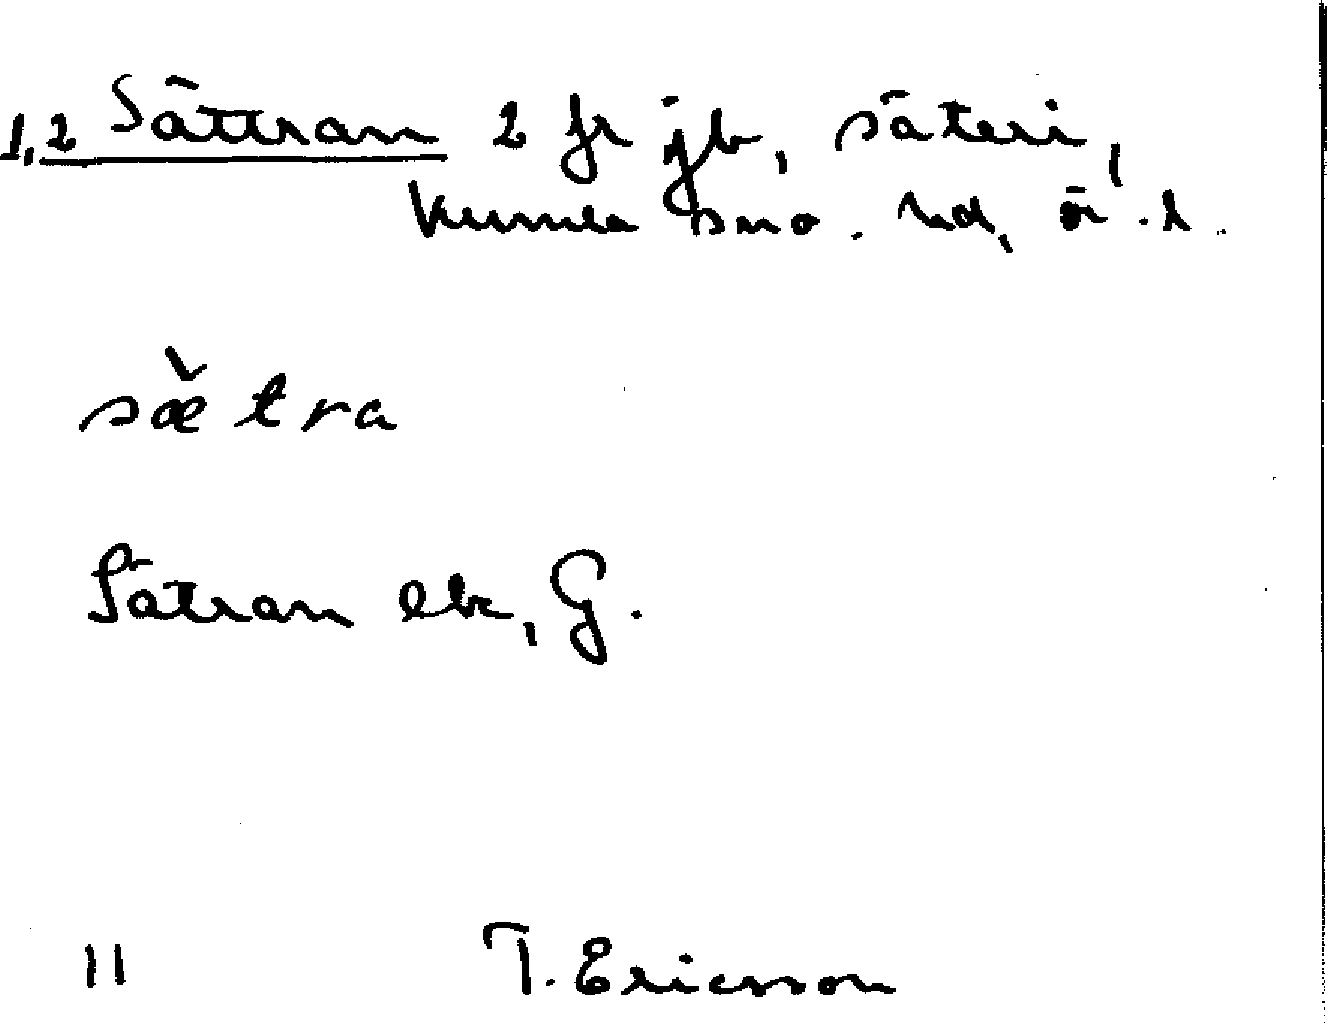 1,2 Sättran 2 fr jb, säteri,
Kumla sn o. hd, Ör. l.
sæ̌tra
Sätran ek, G.
11 T. Ericsson